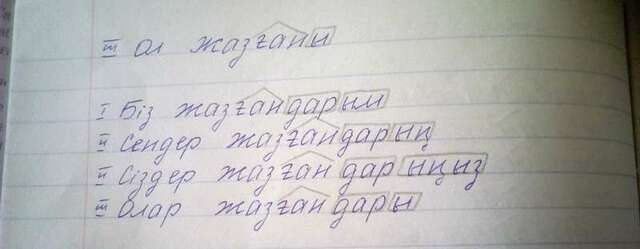 III Ол жазғаны
I Біз жазғандарым
II Сендер жазғандарың
II Сіздер жазғандарыңыз
III Олар жазғандары